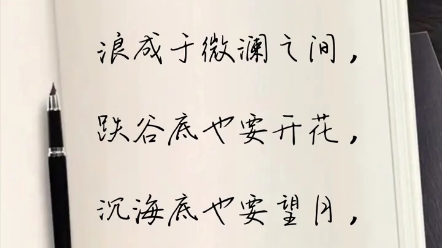 浪成于微澜之间，
跌谷底也要开花，
沉海底也要望月，